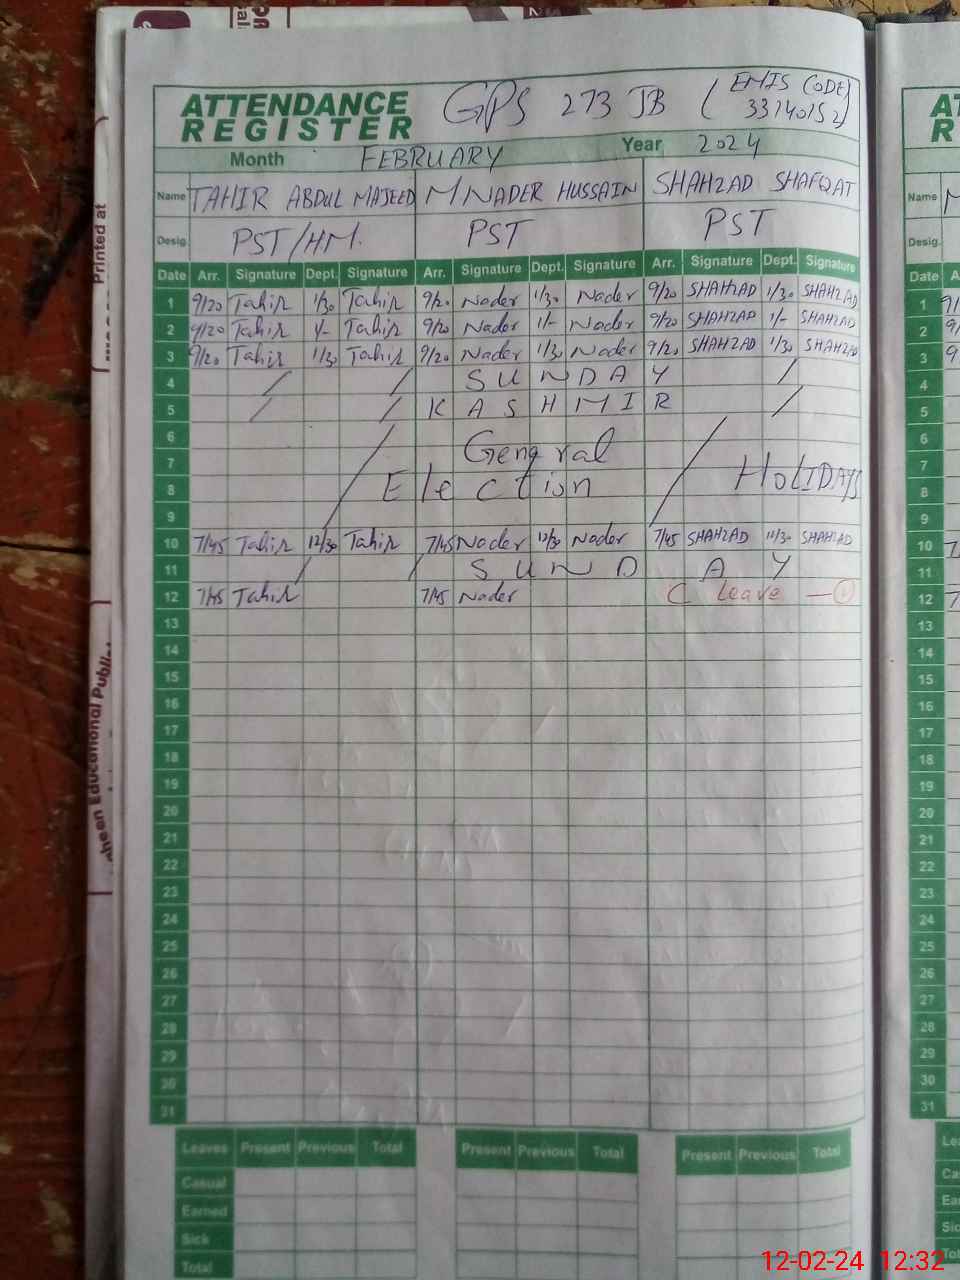 ATTENDANCE
REGISTER
GPS 273 JB (EMIS CODE 33740152)
Month FEBRUARY Year 2024
Name TAHIR ABDUL MAJEED M NADER HUSSAIN SHAHZAD SHAFQAT
Desig. PST/HM. PST PST
Date Arr. Signature Dept. Signature Arr. Signature Dept. Signature Arr. Signature Dept. Signature
1 9/20 Tahir 1/30 Tahir 9/20 Nader 1/30 Nader 9/20 SHAHZAD 1/30 SHAHZAD
2 9/20 Tahir 1/- Tahir 9/20 Nader 1/- Nader 9/20 SHAHZAD 1/- SHAHZAD
3 9/20 Tahir 1/30 Tahir 9/20 Nader 1/30 Nader 9/20 SHAHZAD 1/30 SHAHZAD
4 SUNDAY
5 KASHMIR
6
7 General
8 Election HOLIDAYS
9
10 7/45 Tahir 12/30 Tahir 7/45 Nader 12/30 Nader 7/45 SHAHZAD 12/30 SHAHZAD
11 SUNDAY
12 7/45 Tahir 7/45 Nader C leave —
13
14
15
16
17
18
19
20
21
22
23
24
25
26
27
28
29
30
31
Leaves Present Previous Total Present Previous Total Present Previous Total
Casual
Earned
Sick
Total
Printed at
heen Educational Publi
12-02-24 12:32